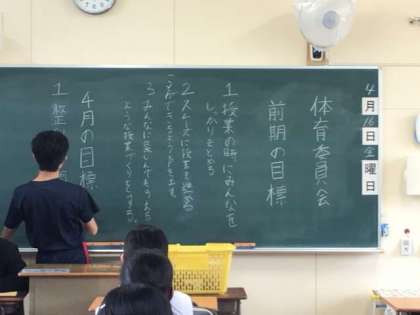 4月16日金曜日
体育委員会
前期の目標
1 授業の時にみんなを
しっかりまとめる
2 スムーズに授業を進める
ことができるようにする
3 みんなに楽しんでもらえる
ような授業づくりをする。
4月の目標
1 整